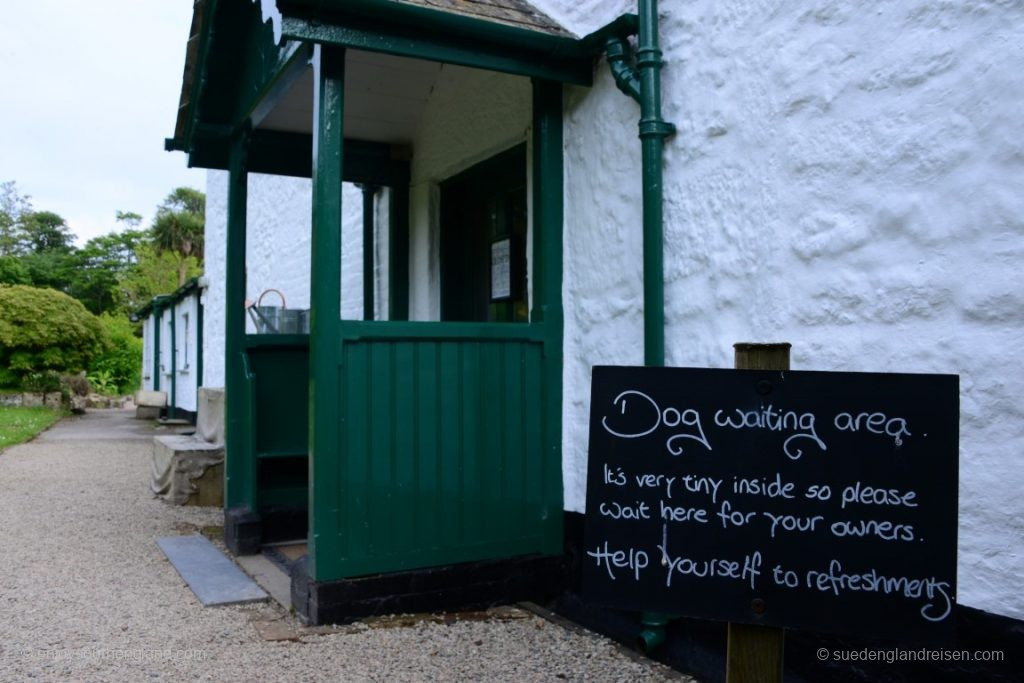 Dog waiting area.
It's very tiny inside so please
wait here for your owners.
Help yourself to refreshments
© suedenglandreisen.com